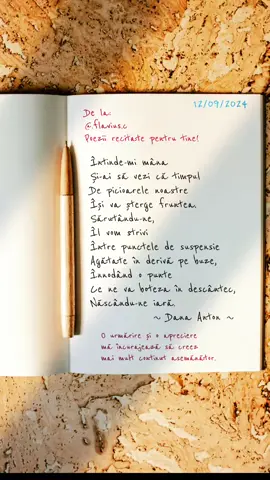 12/09/2024
De la:
@.flaviusc
Poezii recitate pentru tine!
Întinde-mi mâna
Și-ai să vezi că timpul
De picioarele noastre
Își va șterge fruntea.
Sărutându-ne,
Îl vom strivi
Între punctele de suspensie
Agățate în derivă pe buze,
Înnodând o punte
Ce ne va boteza în descântec,
Născându-ne iară.
~ Dana Anton ~
O urmărire și o apreciere
mă încurajează să creez
mai mult conținut asemănător.